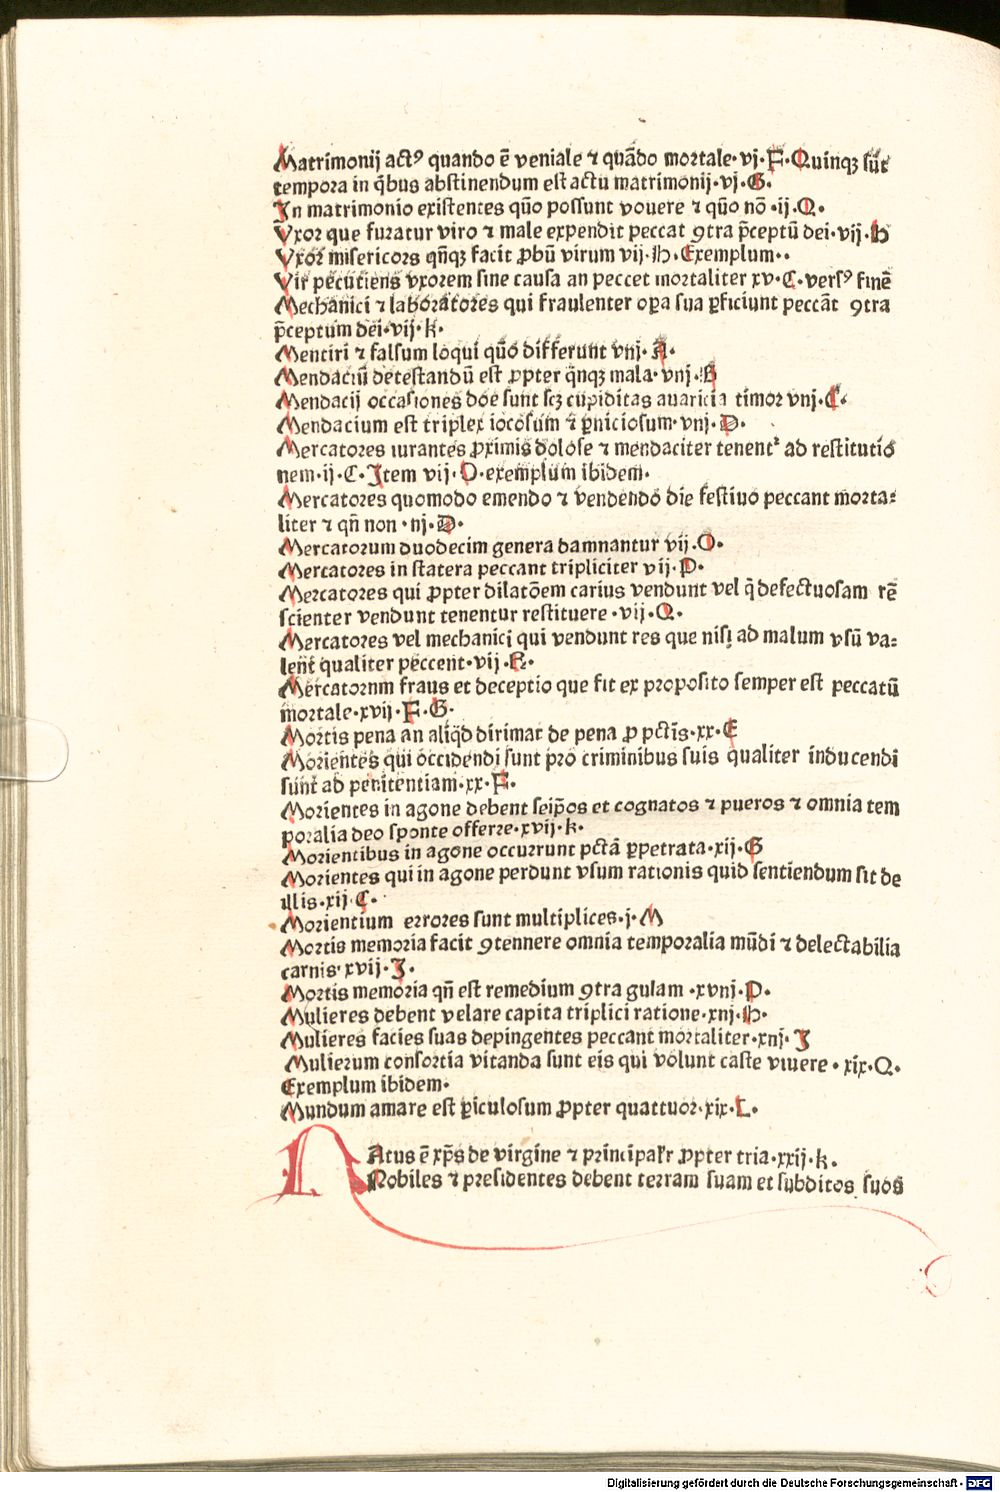 Matrimonij actꝰ quando ē veniale ⁊ quādo mortale·vj·F·Quinqꝫ sūt
tempora in q̄bus abstinendum est actu matrimonij·vj·G·
In matrimonio existentes quō possunt vouere ⁊ quō nō·ij·Q·
Vxor que furatur viro ⁊ male expendit peccat ꝯtra p̄ceptū dei·vij·h
Vxor misericors qn̄qꝫ facit ꝓbū virum vij·h·Exemplum··
Vir pecutiens vxorem sine causa an peccet mortaliter xv·C·versꝰ finē
Mechanici ⁊ laboratores qui fraulenter oꝑa sua ꝑficiunt peccāt ꝯtra
p̄ceptum dei·vij·k·
Mentiri ⁊ falsum loqui quō differunt vnj·A·
Mendaciū detestandū est ꝓpter q̄nqꝫ mala·vnj·B
Mendacij occasiones doe sunt scꝫ cupiditas auaricia timor vnj·C·
Mendacium est triplex iocosum ⁊ ꝑniciosum·vnj·D·
Mercatores iurantes ꝓximis dolose ⁊ mendaciter tenent᷑ ad restitutio
nem·ij·C·Item vij·O·exemplum ibidem·
Mercatores quomodo emendo ⁊ vendendo die festiuo peccant morta⸗
liter ⁊ qn̄ non·nj·D·
Mercatorum duodecim genera damnantur vij·O·
Mercatores in statera peccant tripliciter vij·P·
Mercatores qui ꝓpter dilatōem carius vendunt vel q̄ defectuosam rē
scienter vendunt tenentur restituere·vij·Q·
Mercatores vel mechanici qui vendunt res que nisi ad malum vsū va⸗
lent qualiter peccent·vij·R·
Mercatornm fraus et deceptio que fit ex proposito semper est peccatū
mortale·xvij·F·G·
Mortis pena an aliq̄d dirimat de pena ꝓ pctīs·xx·E
Morientes qui occidendi sunt pro criminibus suis qualiter inducendi
sunt ad penitentiam·xx·F·
Morientes in agone debent seip̄os et cognatos ⁊ pueros ⁊ omnia tem
poralia deo sponte offerre·xvij·k·
Morientibus in agone occurrunt pctā ꝑpetrata·xij·G
Morientes qui in agone perdunt vsum rationis quid sentiendum sit de
illis·xij·C·
Morientium errores sunt multiplices·j·M
Mortis memoria facit ꝯtennere omnia temporalia mūdi ⁊ delectabilia
carnis·xvij·I·
Mortis memoria qn̄ est remedium ꝯtra gulam·xvnj·P·
Mulieres debent velare capita triplici ratione·xnj·h·
Mulieres facies suas depingentes peccant mortaliter·xnj·I
Mulierum consortia vitanda sunt eis qui volunt caste viuere·xix·Q·
Exemplum ibidem·
Mundum amare est ꝑiculosum ꝓpter quattuor·xix·L·
NAtus ē xp̄s de virgine ⁊ principalr ꝓpter tria·xxij·k·
Nobiles ⁊ presidentes debent terram suam et subditos suos
Digitalisierung gefördert durch die Deutsche Forschungsgemeinschaft - DFG